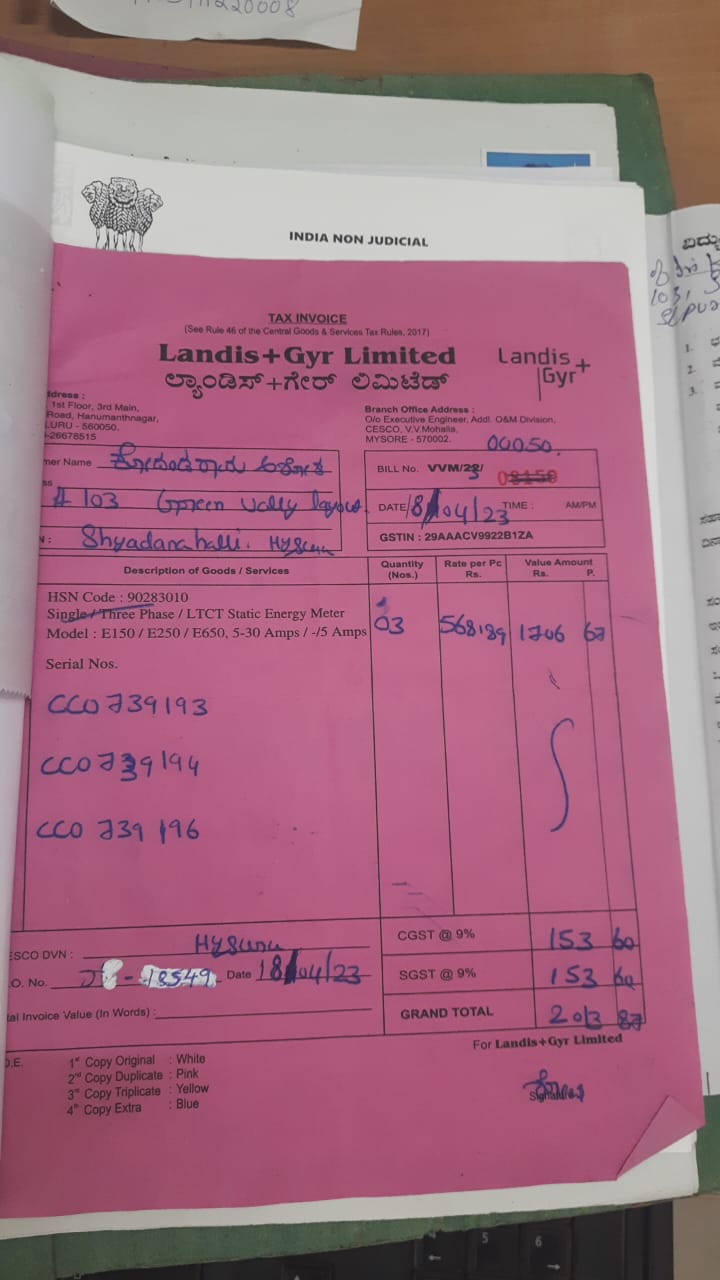 220008
INDIA NON JUDICIAL
TAX INVOICE
(See Rule 46 of the Central Goods & Services Tax Rules, 2017)
Landis+Gyr Limited
ಲ್ಯಾಂಡಿಸ್+ಗೇರ್ ಲಿಮಿಟೆಡ್
Landis+
Gyr
ddress :
1st Floor, 3rd Main,
Road, Hanumanthnagar,
LURU - 560050.
-26678515
Branch Office Address :
O/o Executive Engineer, Addl. O&M Division,
CESCO, V.V.Mohalla,
MYSORE - 570002.
00050.
mer Name
ss # 103 Green vally layout.
N : Shyadanahalli.
BILL No. VVM/23/
DATE 18/04/23 TIME : AM/PM
GSTIN : 29AAACV9922B1ZA
Description of Goods / Services Quantity (Nos.) Rate per Pc Rs. Value Amount Rs. P.
HSN Code : 90283010
Single / Three Phase / LTCT Static Energy Meter
Model : E150 / E250 / E650, 5-30 Amps / -/5 Amps 03 568.89 1706 67
Serial Nos.
CCO 739193
CCO 739194
CCO 739196
ESCO DVN :
O. No. 18549 Date 18/04/23
al Invoice Value (In Words) :
CGST @ 9% 153 60
SGST @ 9% 153 60
GRAND TOTAL 2013 87
For Landis+Gyr Limited
D.E.
1st Copy Original : White
2nd Copy Duplicate : Pink
3rd Copy Triplicate : Yellow
4th Copy Extra : Blue
Signature
103,
1.
2.
3.